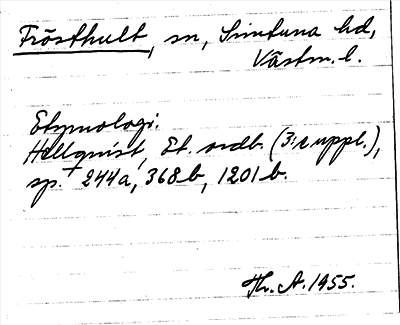 Frösthult, sn, Simtuna hd,
Västm. l.
Etymologi.
Hellquist, Et. ordb. (3:e uppl.),
sp. 244a, 368b, 1201b.
Hr. A. 1955.